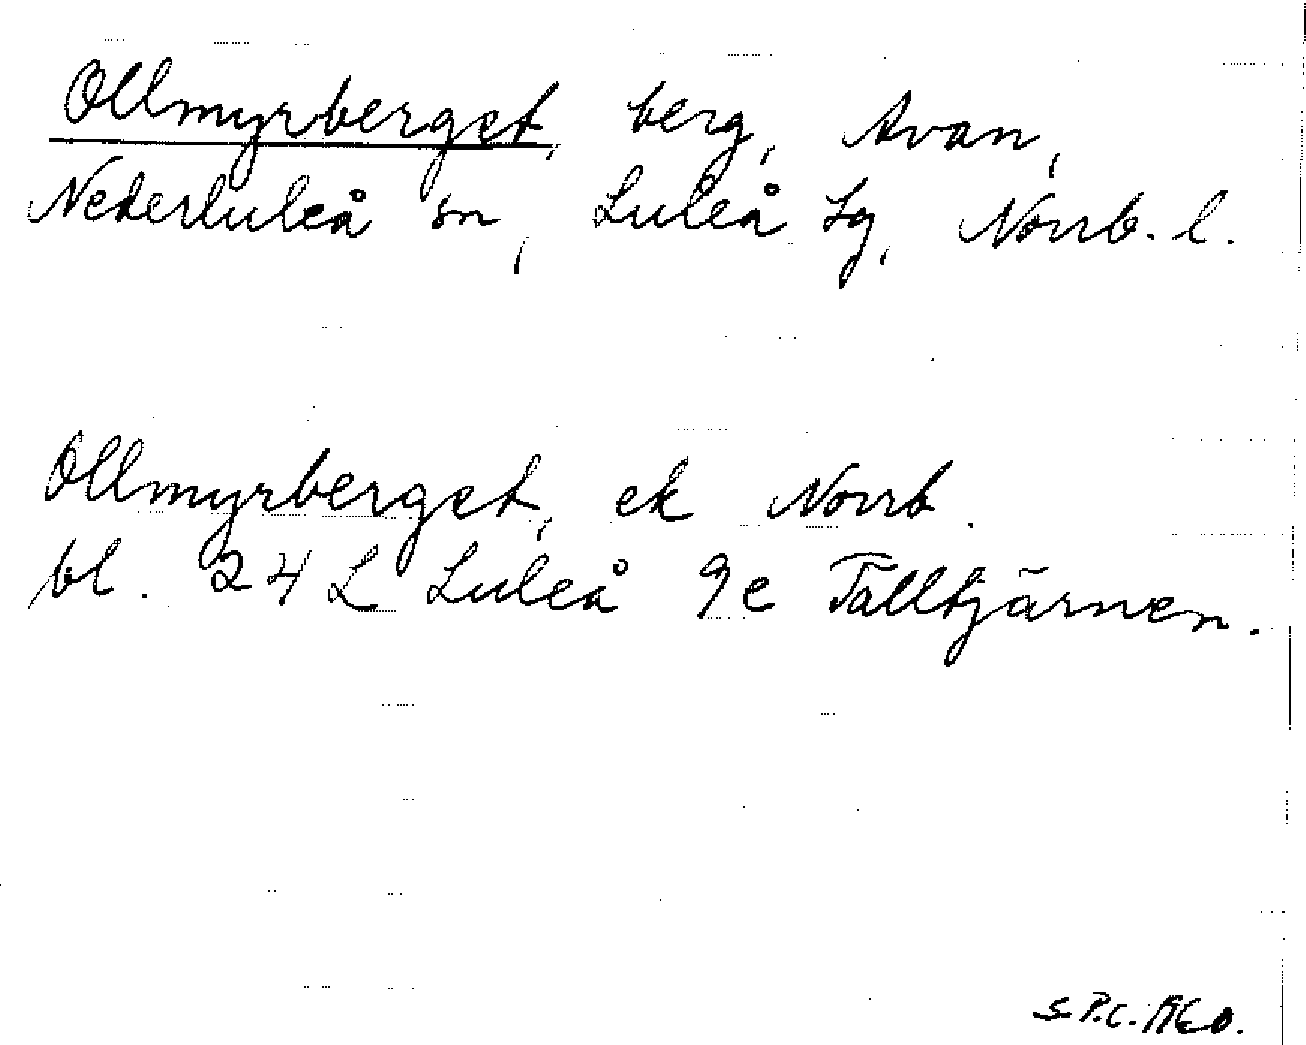 Ollmyrberget, berg, Avan,
Nederluleå sn, Luleå tg, Norrb. l.
Ollmyrberget, ek Norrb.
bl. 24 L Luleå 9e Talltjärnen.
S.P.C.